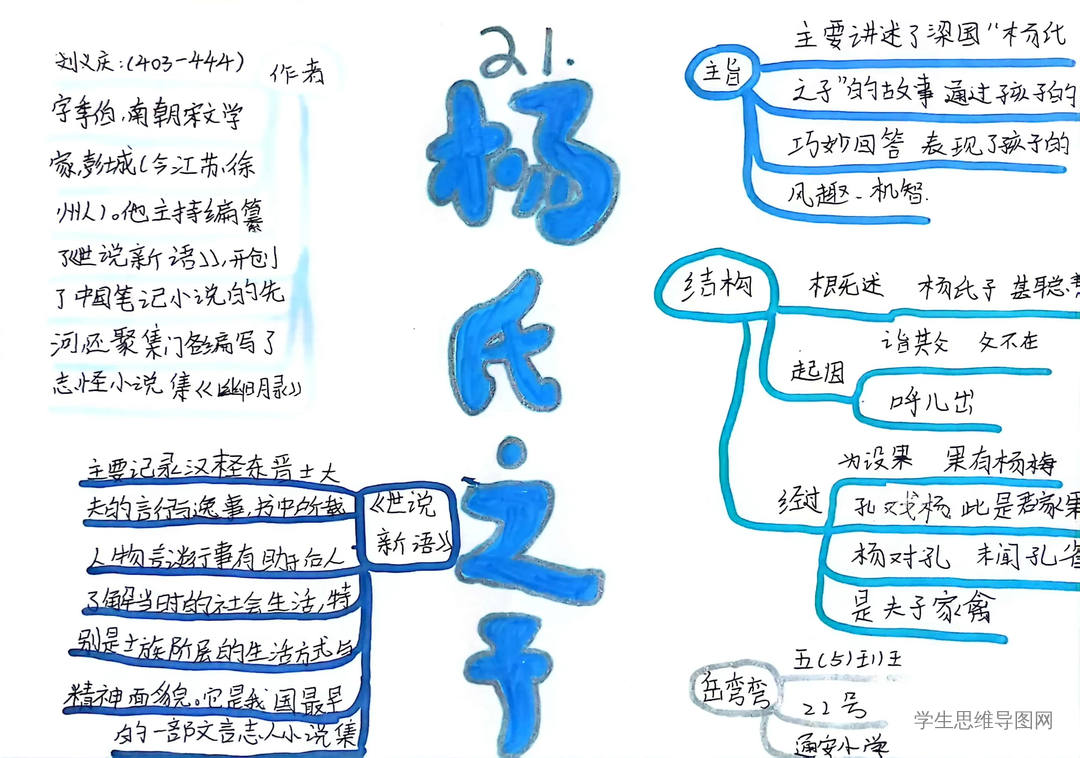 21.
杨氏之子
作者
刘义庆:(403-444)
字季伯,南朝宋文学
家,彭城(今江苏,徐
州人)。他主持编纂
了《世说新语》,开创
了中国笔记小说的先
河,还聚集门客编写了
志怪小说集《幽明录》
《世说
新语》
主要记录汉末至东晋士大
夫的言行与逸事,书中所载
人物言谈行事有助于后人
了解当时的社会生活,特
别是士族阶层的生活方式与
精神面貌。它是我国最早
的一部文言志人小说集
主旨
主要讲述了梁国“杨氏
之子”的故事 通过孩子的
巧妙回答 表现了孩子的
风趣、机智.
结构
杨氏子 甚聪
起因
诣其父 父不在
呼儿出
经过
为设果 果有杨梅
孔戏杨 此是君家果
杨对孔 未闻孔雀
是夫子家禽
岳弯弯
五(5)
22号
小学
学生思维导图网